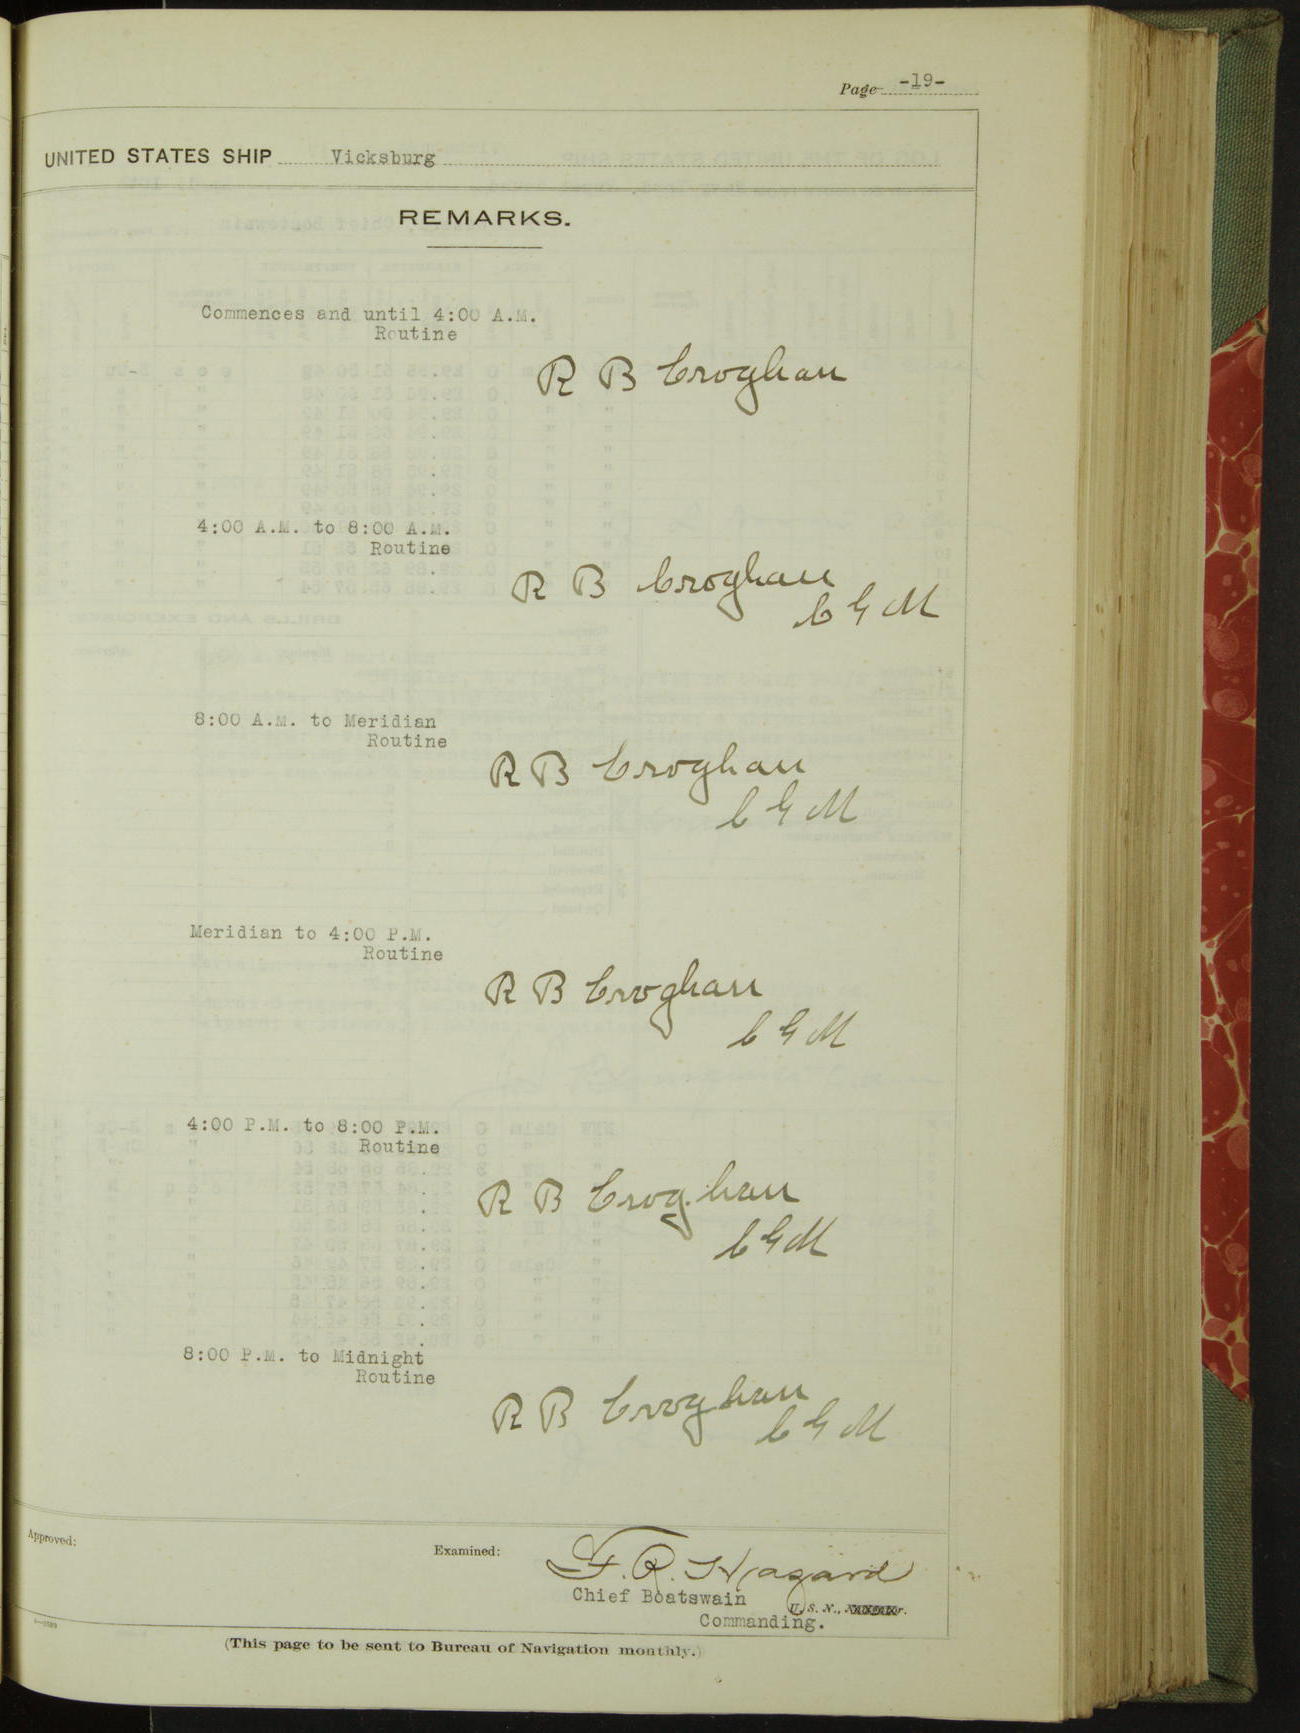 Page -19-
UNITED STATES SHIP Vicksburg
REMARKS.
Commences and until 4:00 A.M.
Routine
R B Croghan
4:00 A.M. to 8:00 A.M.
Routine
R B Croghan
C G M
8:00 A.M. to Meridian
Routine
R B Croghan
C G M
Meridian to 4:00 P.M.
Routine
R B Croghan
C G M
4:00 P.M. to 8:00 P.M.
Routine
R B Croghan
C G M
8:00 P.M. to Midnight
Routine
R B Croghan
C G M
Approved:
Examined:
F. R. Hazard
Chief Boatswain
U. S. N.,
Commanding.
(This page to be sent to Bureau of Navigation monthly.)